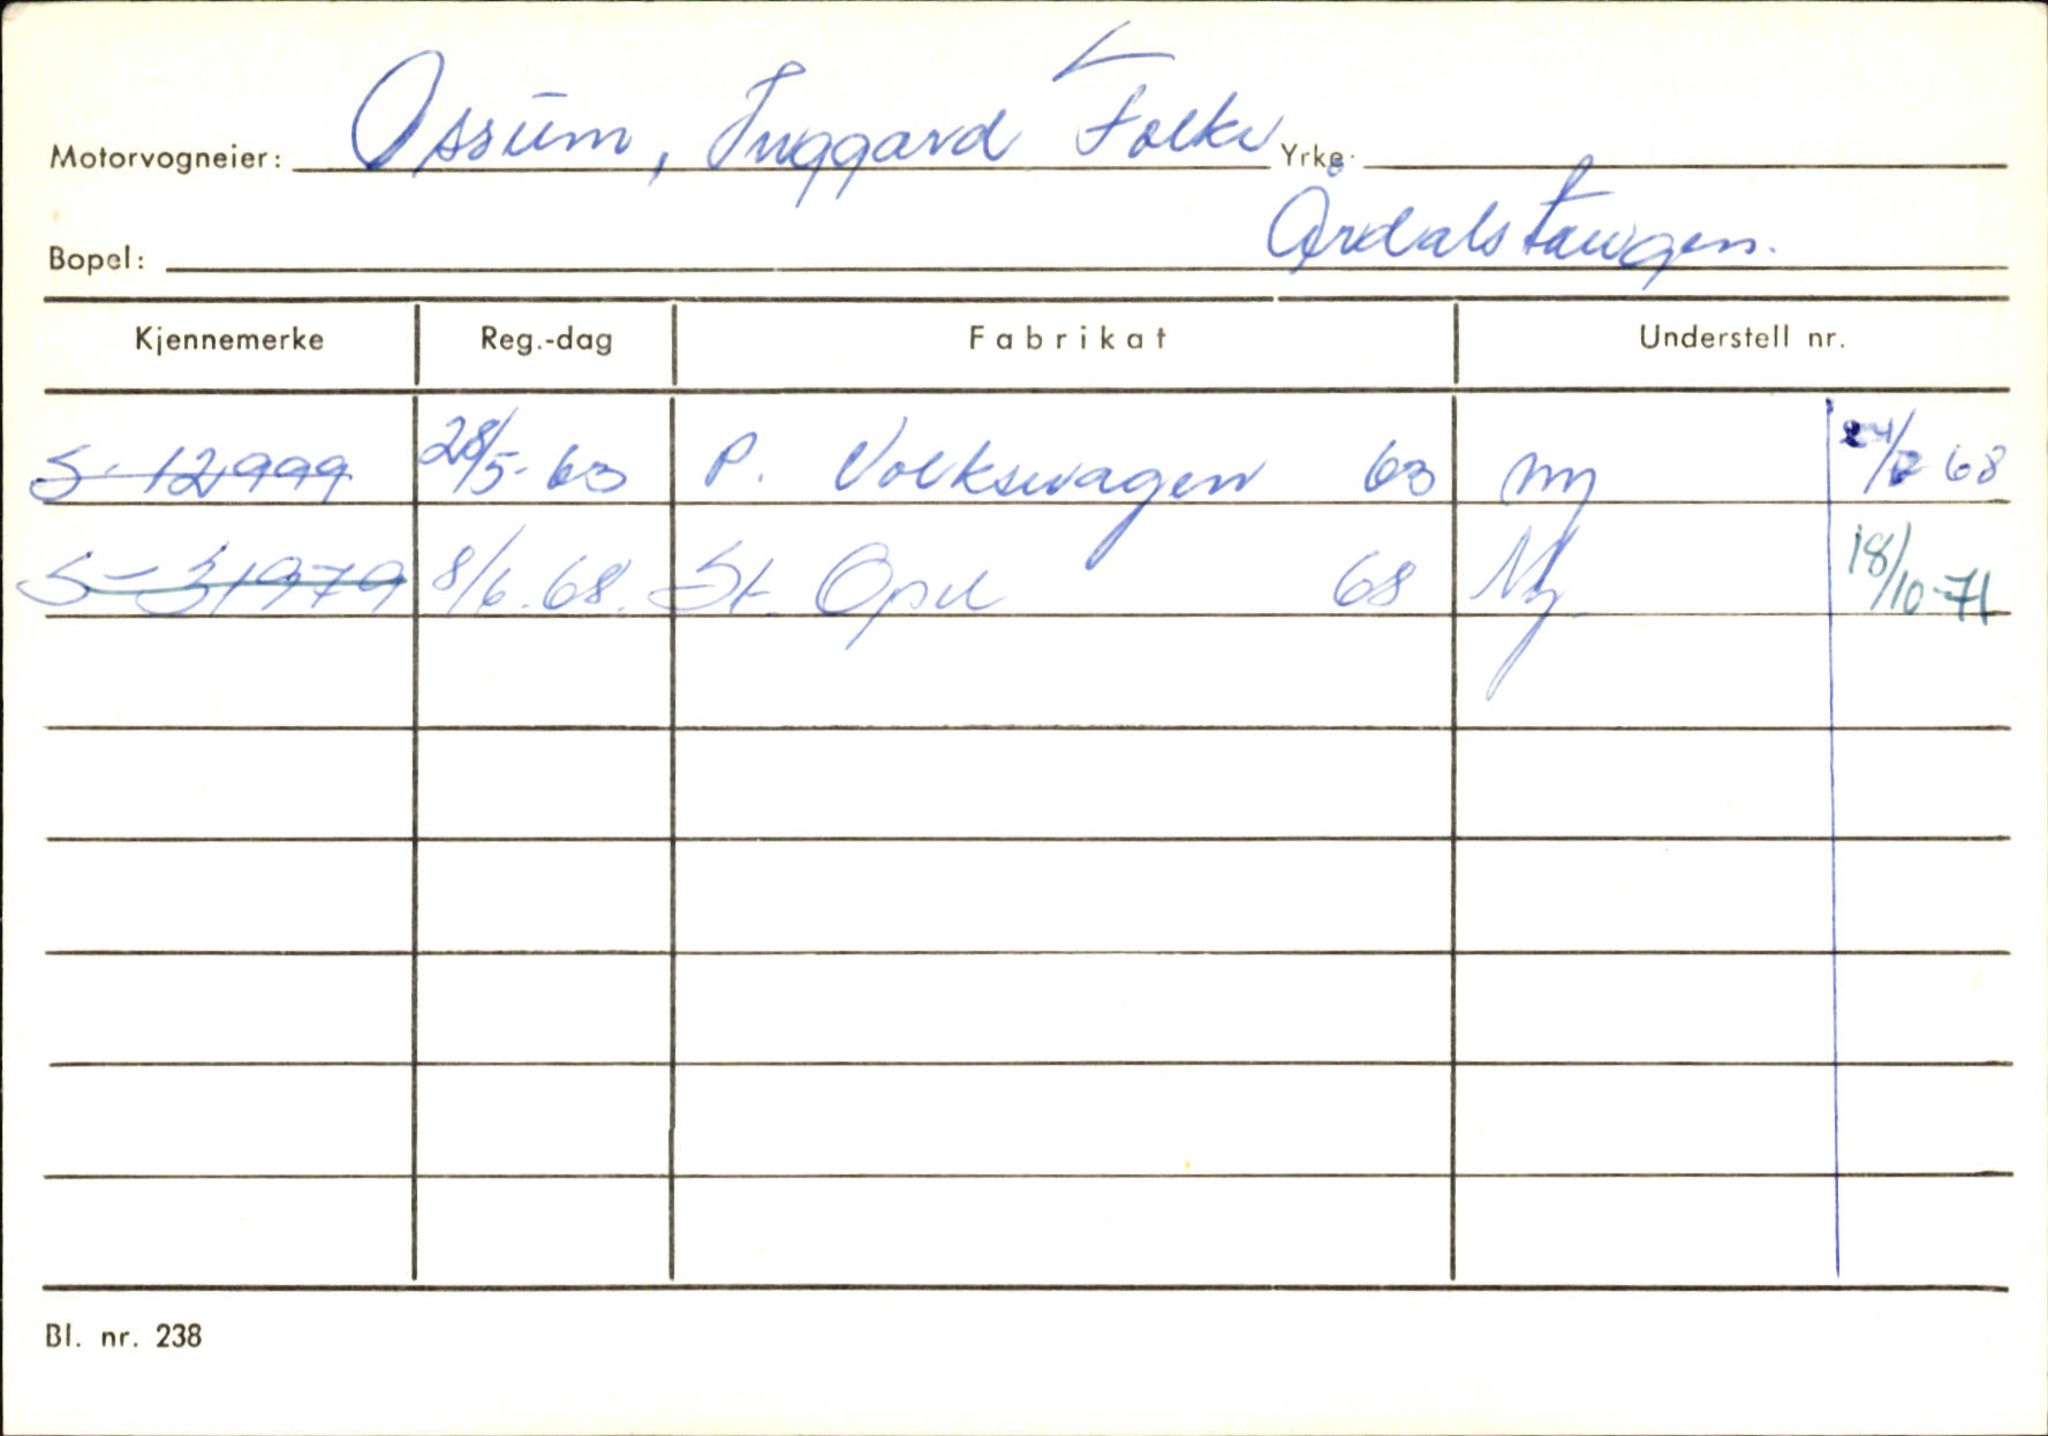 Motorvogneier: Ossum, Inggard Folke Yrke:
Bopel: Årdalstangen.
Kjennemerke Reg.-dag Fabrikat Understell nr.
S-12999 28/5-63 P. Volkswagen 63 ny 68
S-31979 8/6.68. St. Opel 68 Ny 18/10-71
Bl. nr. 238